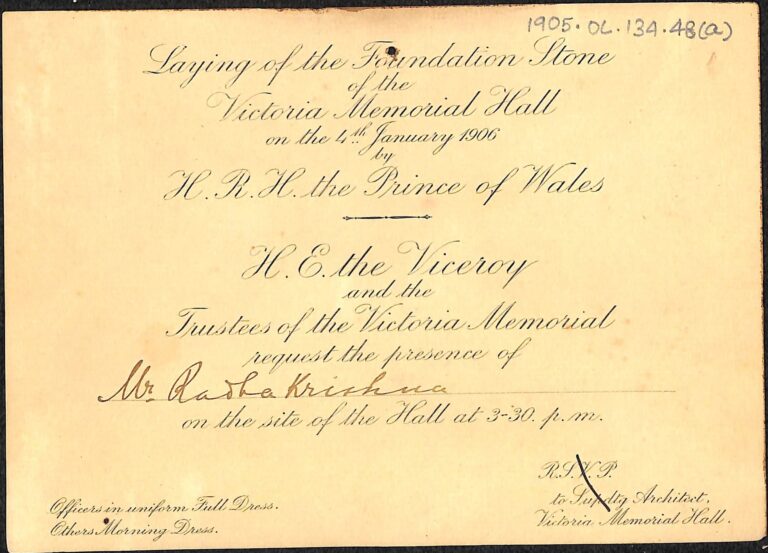 1905.OL.134.48(a)
Laying of the Foundation Stone
of the
Victoria Memorial Hall
on the 4th January 1906
by
H. R. H. the Prince of Wales
H. E. the Viceroy
and the
Trustees of the Victoria Memorial
request the presence of
Mr. Radha Krishna
on the site of the Hall at 3-30. p.m.
R.S.V.P.
to Supdtg Architect,
Victoria Memorial Hall.
Officers in uniform Full Dress.
Others Morning Dress.